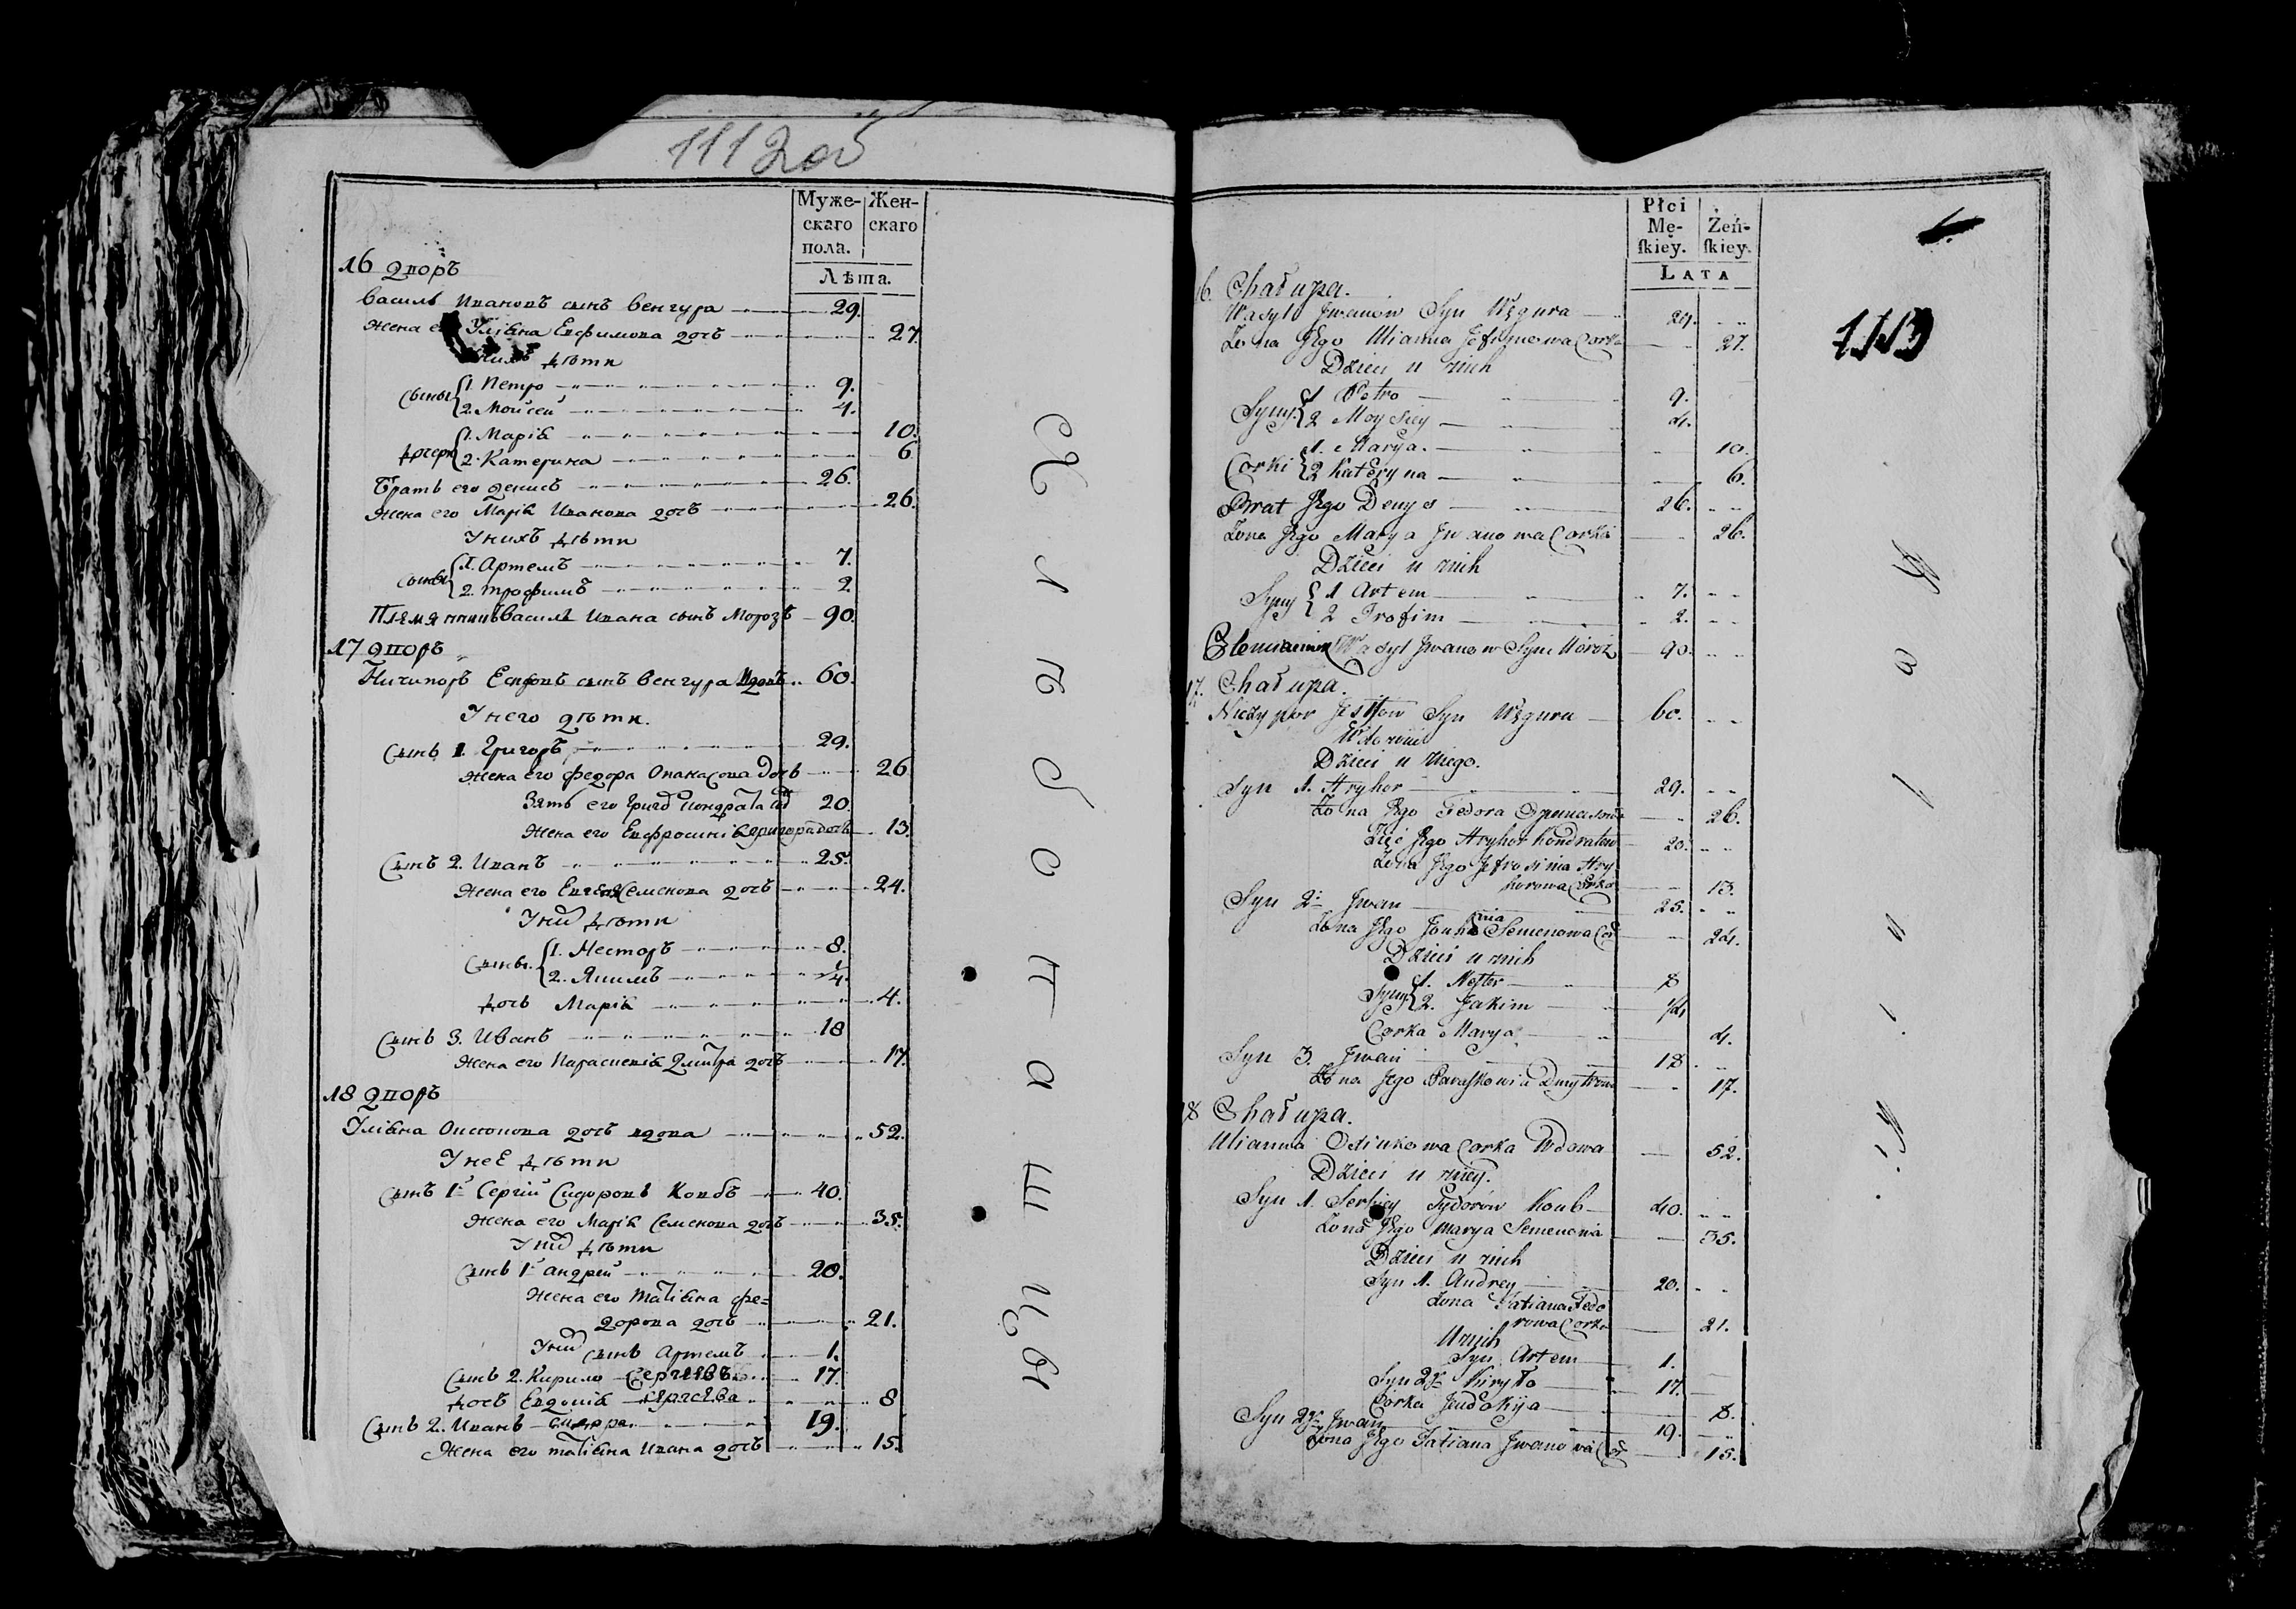 1112 об
Муже-
скаго
пола.
Жен-
скаго
Лѣта.
16 дворъ
Василь Ивановъ сынъ Венгура 29.
Жена его Уліяна Евфимова дочь 27
У нихъ дѣти
Сыны 1. Петро 9.
2. Мойсей 4.
Дочери 1. Марія 10.
2. Катерина 6
Братъ его Денисъ 26.
Жена его Марія Иванова дочь 26.
У нихъ дѣти
Сыны 1. Артемъ 7.
2. Трофимъ 2
Племянникъ Василь Ивана сынъ Морозъ 90.
17 дворъ
Ничипоръ Есифовъ сынъ Венгура вдовъ 60.
У него дѣти.
Сынъ 1. Григоръ 29.
Жена его Федора Опанасова дочь 26
Зять его Григо Кондрата 20.
Жена его Евфросинія Григора дочь 13.
Сынъ 2. Иванъ 25.
Жена его Семенова дочь 24.
У них дѣти
Сыны. 1. Несторъ 8.
2. Якимъ 1/4.
Дочь Марія 4.
Сынъ 3. Иванъ 18
Жена его Парасковія Дмитра дочь 17.
18 дворъ
Уліяна дочь вдова 52.
У неё дѣти
Сынъ 1й Сергій Сидоровъ Ковбъ 40.
Жена его Марія Семенова дочь 35.
У них дѣти
Сынъ 1й Андрей 20.
Жена его Татіяна Фе=
дорова дочь 21.
У них сынъ Артемъ 1.
Сынъ 2. Кирило Сергѣевъ 17.
Дочь Евдокія Сергѣева 8
Сынъ 2. Иванъ Сидора 19.
Жена его Татіяна Ивана дочь 15.
Хлѣбопашцы
Płci
Mę-
ſkiey.
Żeń-
ſkiey.
LATA
1113
16. Chałupa.
Wasyl Jwanow Syn Węgura 29.
Żona Jego Ulianna Jefymowa Corka 27.
Dzieci u nich
Syny 1 Petro 9.
2 Moysiey 4.
Corki 1. Marya. 10.
2 Kateryna 6.
Brat Jego Denys 26.
Żona Jego Marya Jwanowa Corka 26.
Dzieci u nich
Syny 1 Artem 7.
2 Trofim 2.
Wasyl Jwanow Syn Moroz 90.
17. Chałupa.
Niczypor Syn Węgura 60.
Wdowiec
Dzieci u niego.
Syn 1. Hryhor 29.
Żona Jego Fedora 26.
Zięć Jego Hryhor Kondratow 20.
Żona Jego Jefrosinia Hry-
horowa Corka 13.
Syn 2. Jwan 25.
Żona Jego Semenowa Cor 24.
Dzieci u nich
Syny 1. Neſtor 8
2. Jakim 1/4
Corka Marya 4.
Syn 3. Jwan 18.
Żona Jego Paraſkowia Dmytrowa 17.
18 Chałupa.
Ulianna Corka Wdowa 52.
Dzieci u niey.
Syn 1. Serhiey Sydorow Koub 40.
Żona Jego Marya Semenowa 35.
Dzieci u nich
Syn 1. Andrey 20.
Żona Tatiana Fedo
rowa Corka 21.
U nich
Syn Artem 1.
Syn 2gi Kiryło 17.
Corka Jeudokija 8.
Syn 2gi Jwan 19.
Żona Jego Tatiana Jwanowa Cor 15.